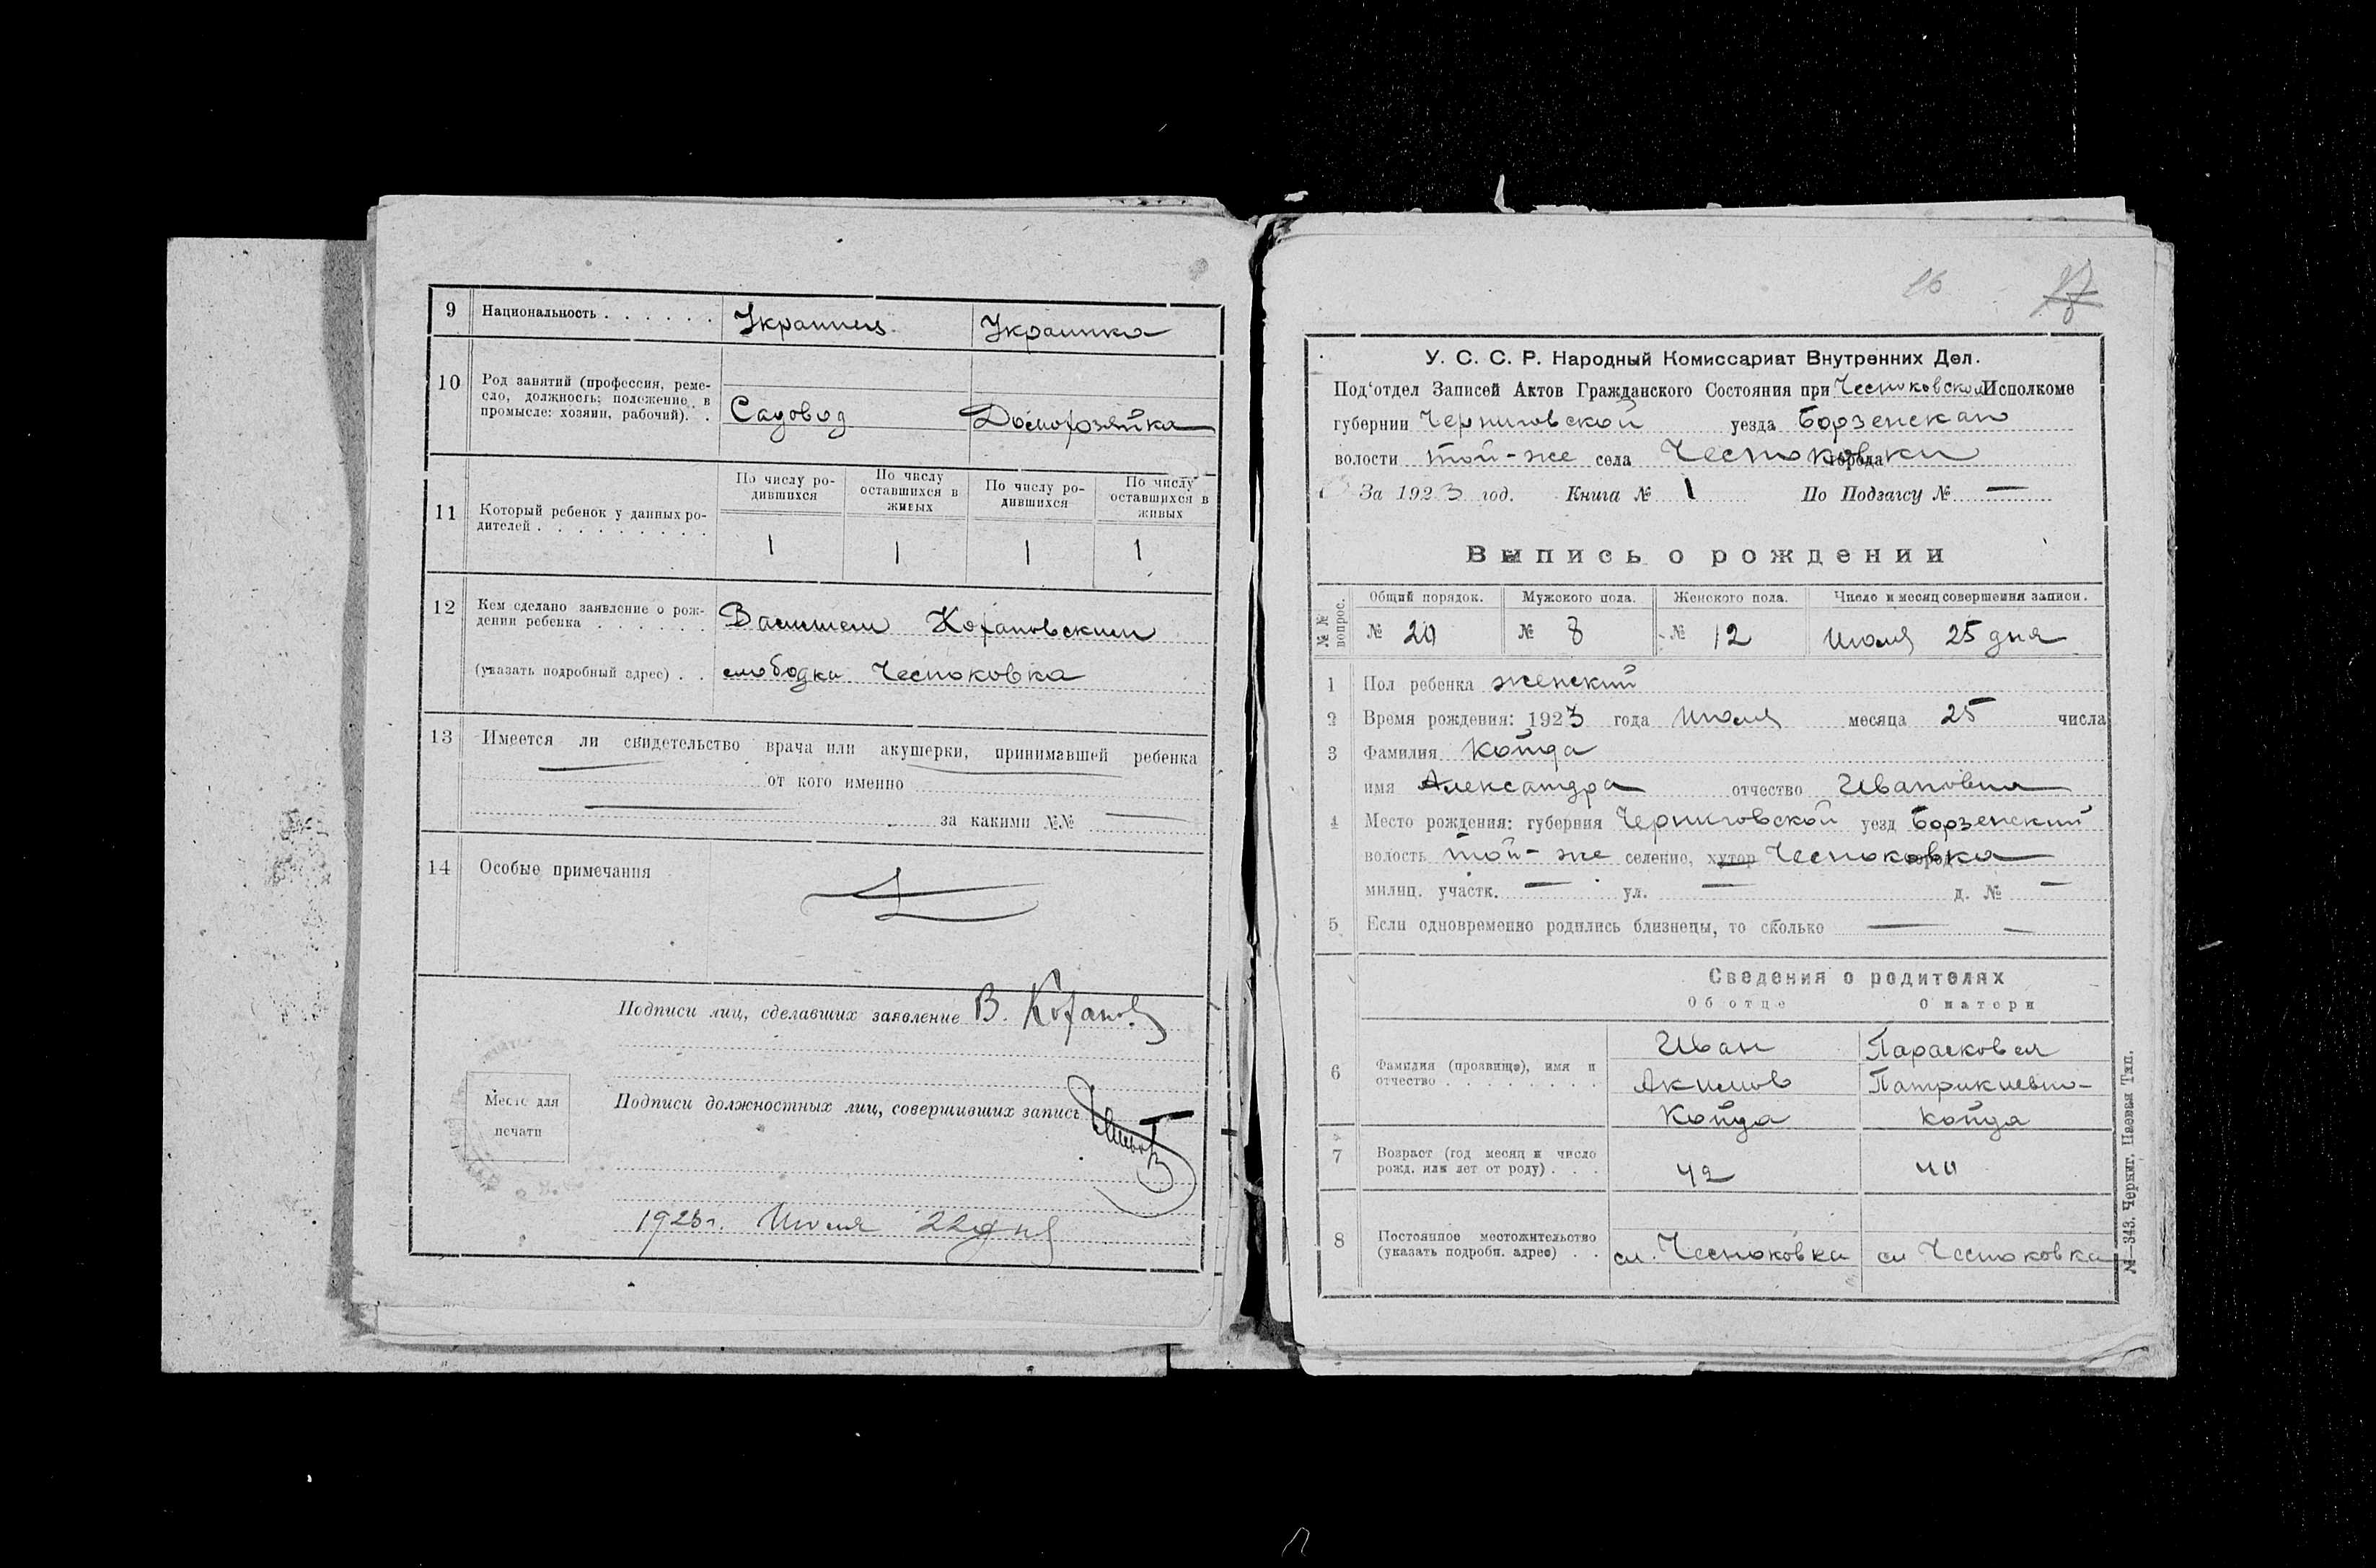 9 Национальность . . . . . . Украинец Украинка
10 Род занятий (профессия, реме-
сло, должность; положение в
промысле: хозяин, рабочий). . Садовод Домохозяйка
По числу ро-
дившихся
По числу
оставшихся в
живых
По числу ро-
дившихся
По числу
оставшихся в
живых
11 Который ребенок у данных ро-
дителей . . . . . . . . .
1 1 1 1
12 Кем сделано заявление о рож-
дении ребенка . . . . . . Кохановским
(указать подробный адрес) . . слободки Чесноковка
13 Имеется ли свидетельство врача или акушерки, принимавшей ребенка
от кого именно
за какими №№
14 Особые примечания
Подписи лиц, сделавших заявление В. Коханов
Подписи должностных лиц, совершивших запись
Место для
печати
1923 г. Июля 22 дня
16 17
У. С. С. Р. Народный Комиссариат Внутренних Дел.
Под'отдел Записей Актов Гражданского Состояния при Чесноковском Исполкоме
губернии Черниговской уезда Борзенскаго
волости той-же села города Чесноковки
За 1923 год. Книга № 1 По Подзагсу № —
Выпись о рождении
№№ вопрос.
Общий порядок. Мужского пола. Женского пола. Число и месяц совершения записи.
№ 20 № 8 № 12 Июля 25 дня
1 Пол ребенка женский
2 Время рождения: 1923 года Июля месяца 25 числа
3 Фамилия Койда
имя Александра отчество Ивановна
4 Место рождения: губерния Черниговской уезд Борзенский
волость той-же селение, хутор город Чесноковка
милиц. участк. — ул. — д. № —
5 Если одновременно родились близнецы, то сколько —
Сведения о родителях
Об отце О матери
6 Фамилия (прозвище), имя и
отчество . . . . . . . .
Иван Парасковея
Акимов Патрикиевна
Койда Койда
7 Возраст (год месяц и число
рожд. или лет от роду) . . . 42 40
8 Постоянное местожительство
(указать подробн. адрес) . . сл. Чесноковка сл Чесноковка
№—343. Черниг. Паевая Тип.